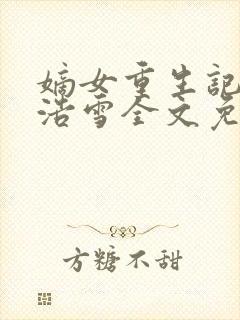 嫡女重生記
浩雪全文免
方糖不甜